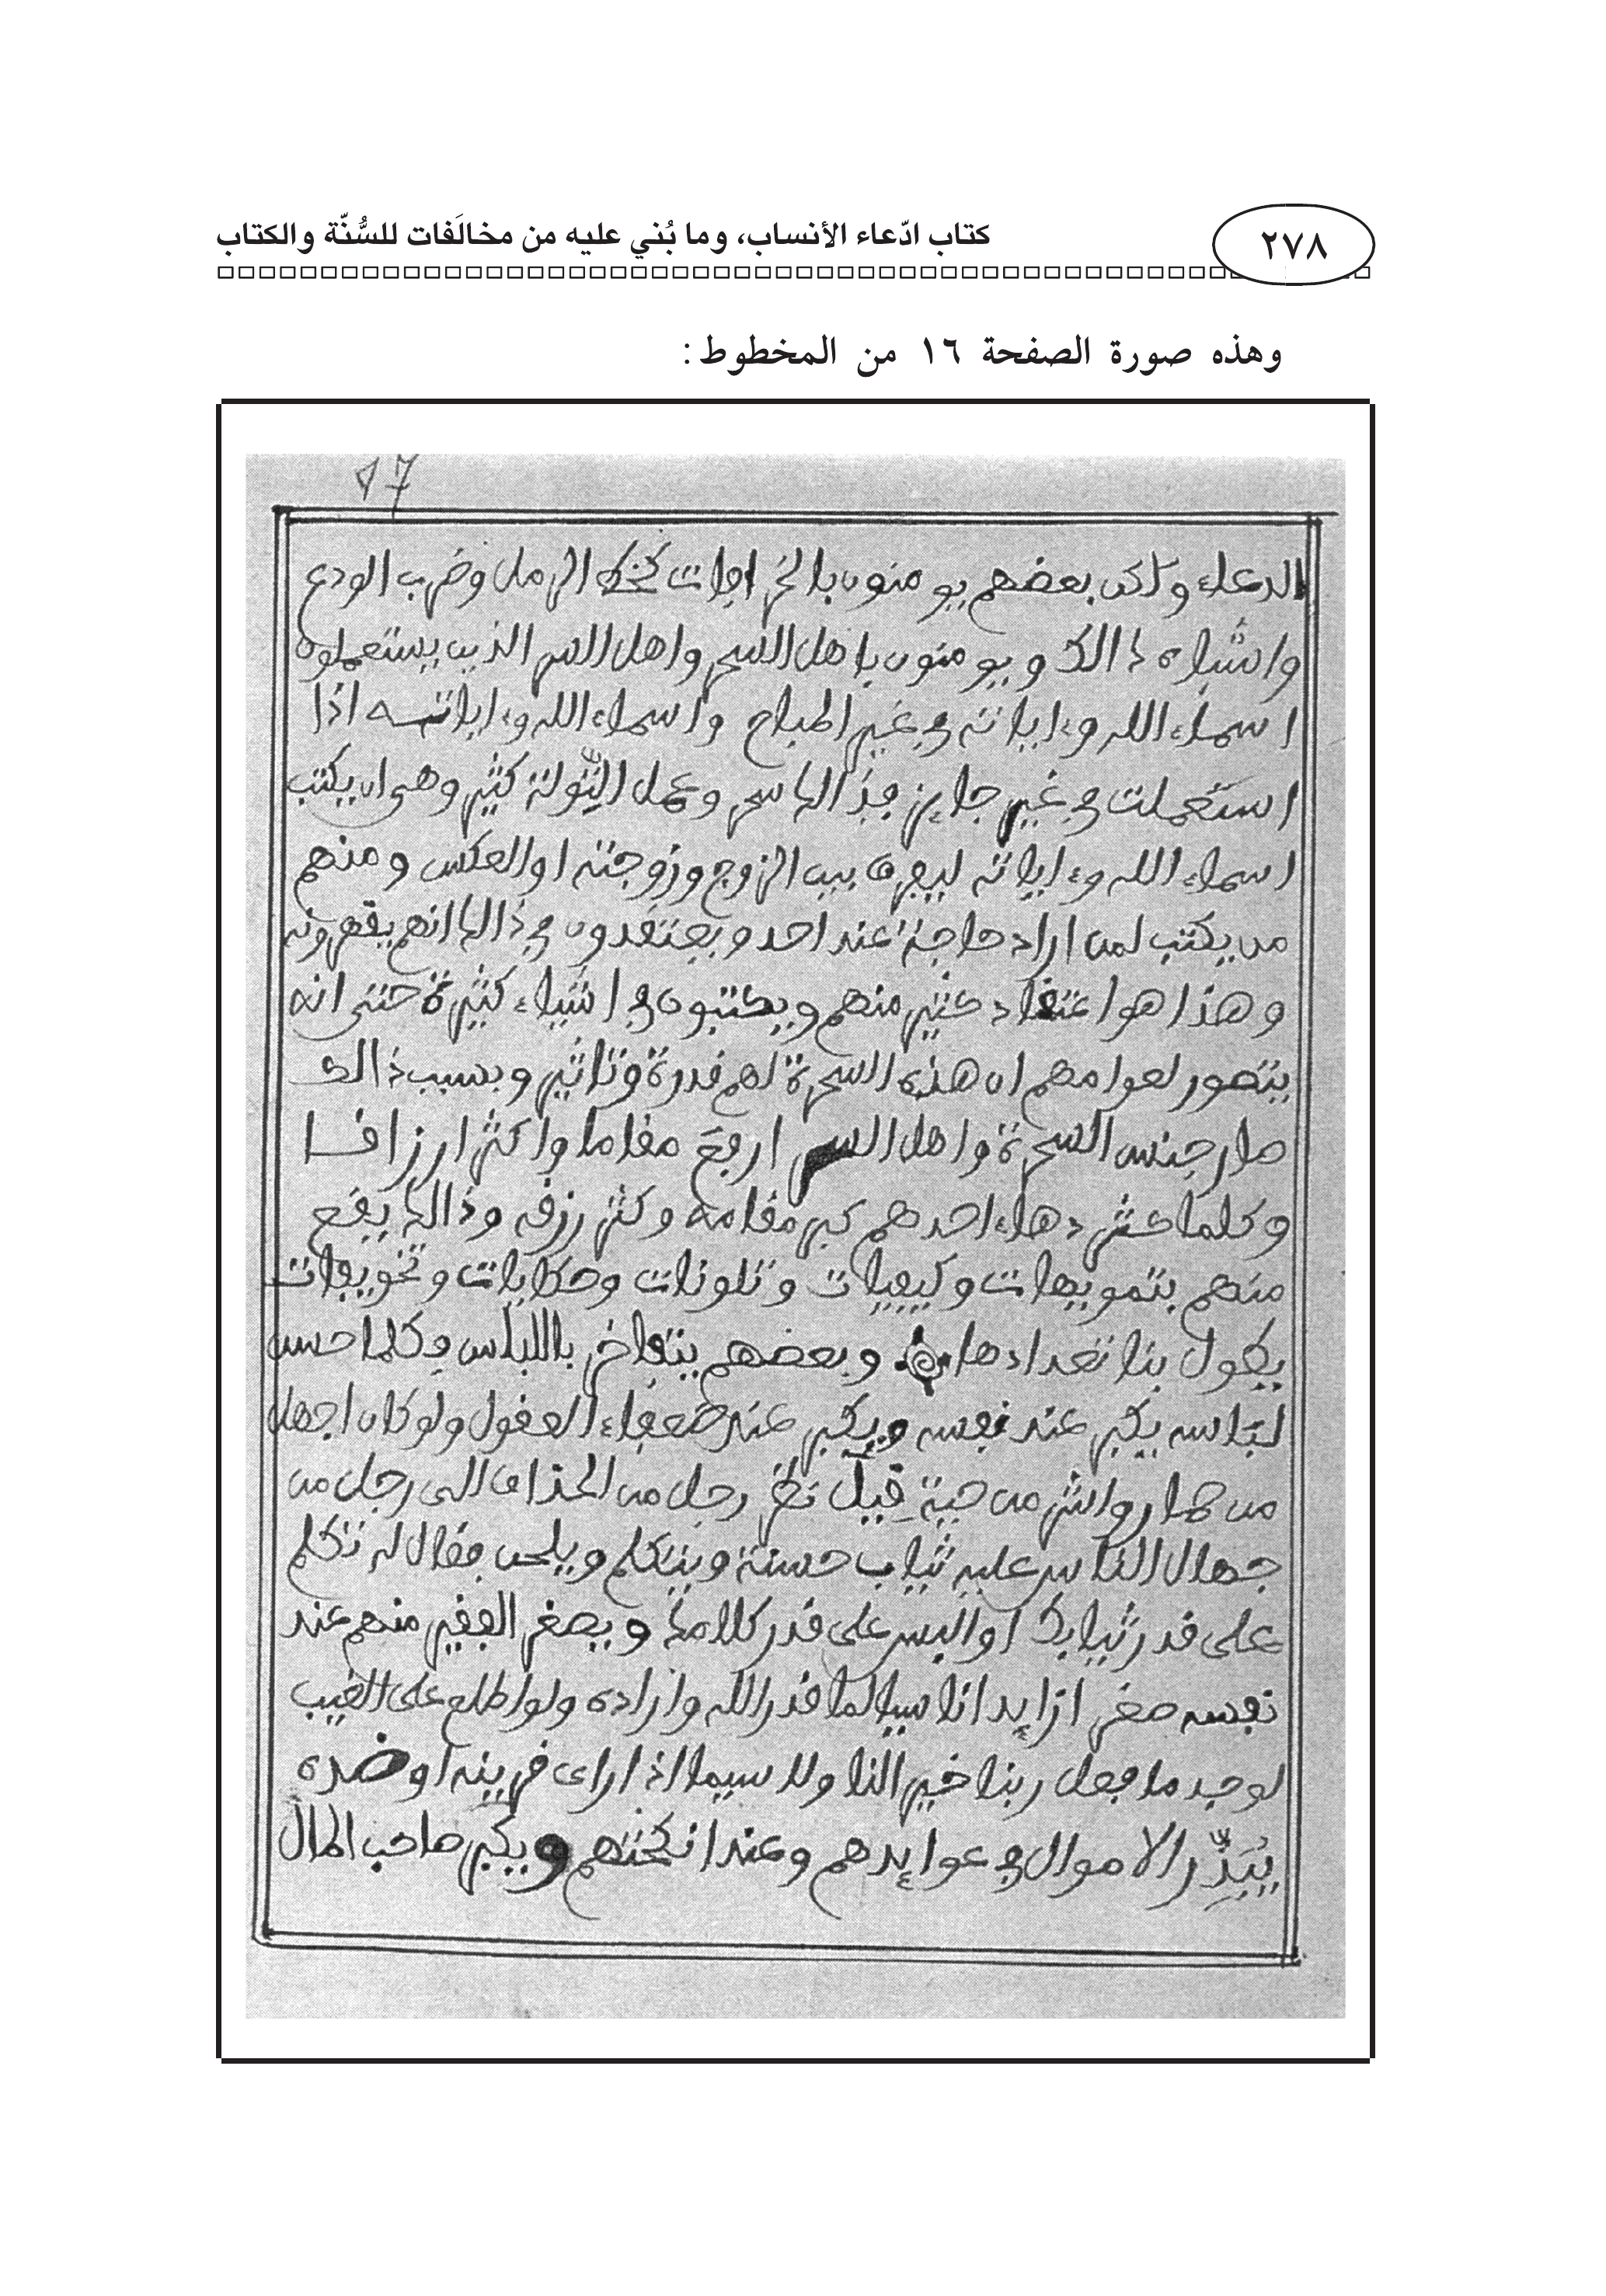 كتاب ادّعاء الأنساب، وما بُني عليه من مخالَفات للسُّنّة والكتاب
٢٧٨
وهذه صورة الصفحة ١٦ من المخطوط:
الدعاء ولاكن بعضهم يومنون بالخرافات كخط الرمل وضرب الودع
واشباه ذالك ويومنون باهل السحر واهل السر الذين يستعملون
اسماء الله وءاياته في غير المباح واسماء الله وءاياته اذا
استعملت في غير جايز فذالك سحر وعمل التِّوَلة كثير وهى ان يكتب
اسماء الله وءاياته ليفرق بين الزوج وزوجته او العكس ومنهم
من يكتب لمن اراد حاجة عند احد ويعتقدون في ذالك انهم يقهرونه
وهذا هو اعتقاد كثير منهم ويكتبون في اشياء كثيرة حتى انه
يتصور لعوامهم ان هذه السحرة لهم قدرة وتاثير وبسبب ذالك
صار جنس السحرة واهل السر ارفع مقاما واكثر ارزاقا
وكلما كثر دهاء احدهم كبر مقامه وكثر رزقه وذالك يقع
منهم بتمويهات وكيفيات وتلونات وحكايات وتخويفات
يطول بنا تعدادها وبعضهم يتفاخر باللباس وكلما حسن
لباسه يكبر عند نفسه ويكبر عند ضعفاء العقول ولو كان اجهل
من حمار واشر من حية قيل نظر رجل من الحذاق الى رجل من
جهال الناس عليه ثياب حسنة ويتكلم ويلحن فقال له تكلم
على قدر ثيابك او البس على قدر كلامك ويصغر الفقير منهم عند
نفسه صغر ازايدا ناسيا لما قدر الله واراده ولو اطلع على الغيب
لوجد ما فعل ربنا خير النا ولا سيما اذا راى قرينه او ضده
يُبَذِّر الاموال في عوايدهم وعند انكحتهم ويكبر صاحب المال